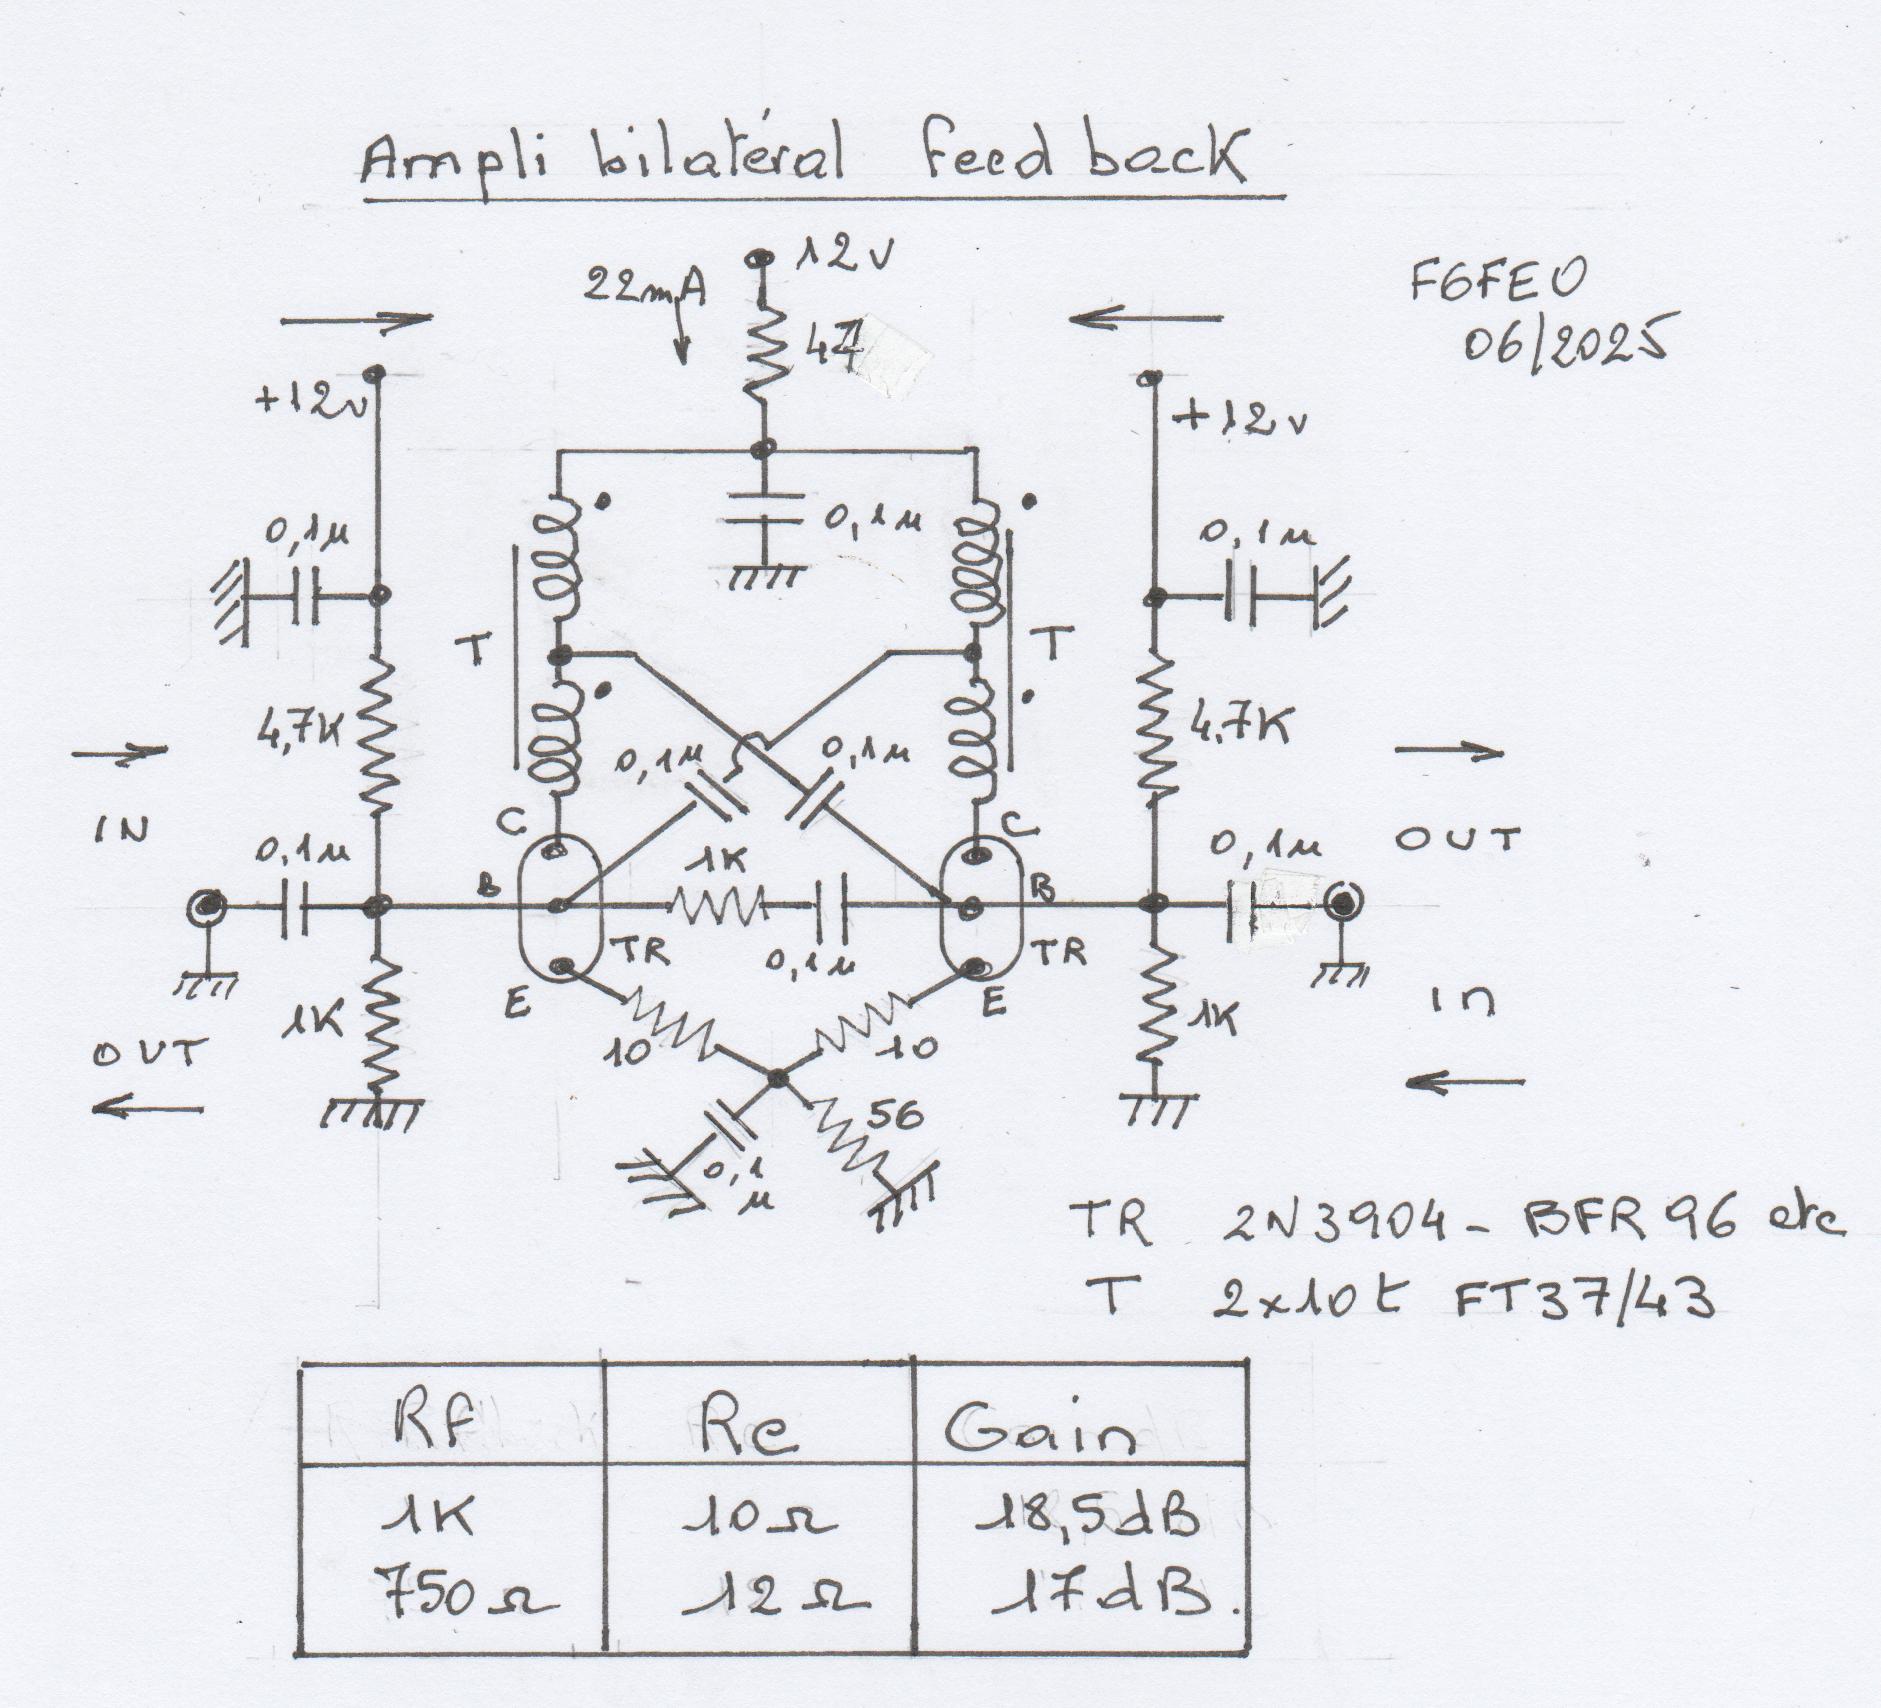 Ampli bilatéral feed back
12v
22mA
47
F6FEO
06/2025
+12v
+12v
0,1µ
0,1µ
0,1µ
T
T
4,7K
4,7K
0,1µ
0,1µ
IN
OUT
C
C
0,1µ
0,1µ
1K
B
B
TR
TR
0,1µ
E
E
1K
1K
In
OUT
10
10
56
0,1
µ
TR 2N3904 - BFR 96 etc
T 2x10t FT37/43
Rf Re Gain
1K 10Ω 18,5dB
750Ω 12Ω 17dB.